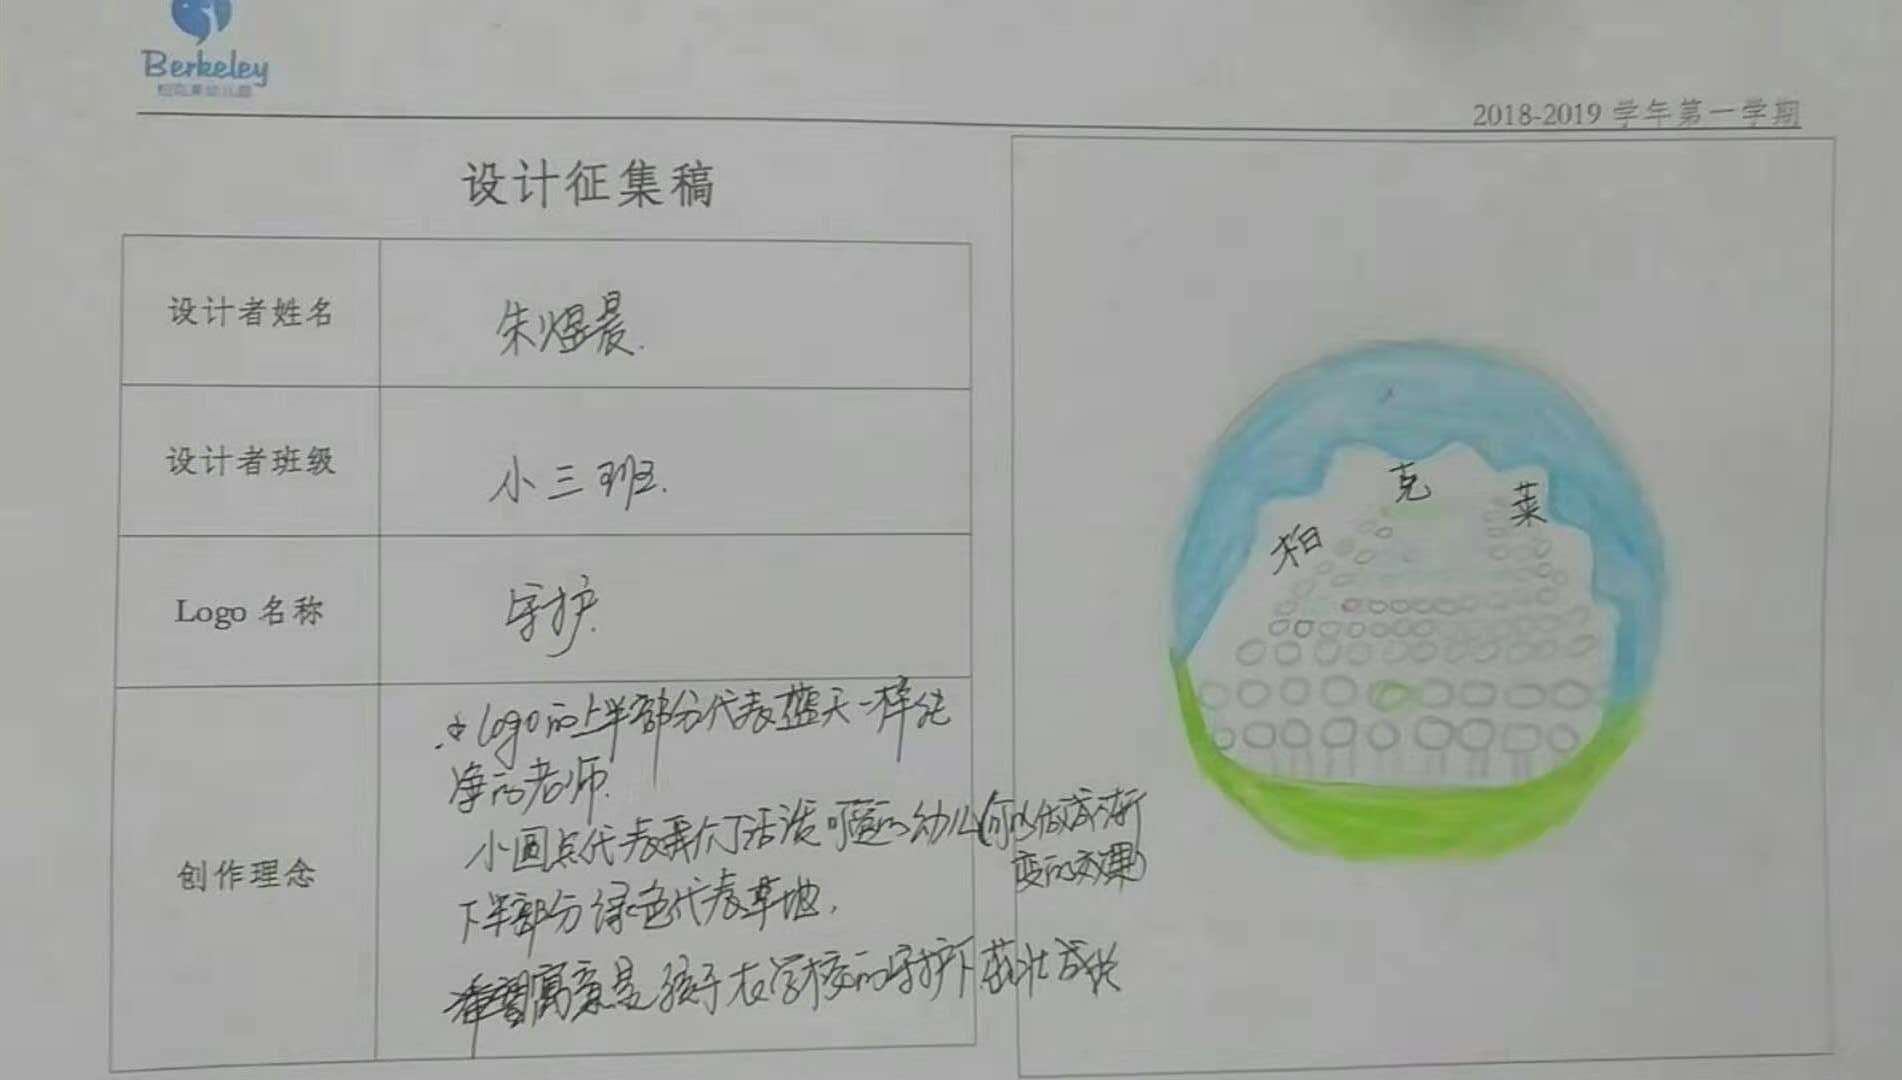 Berkeley
柏克莱幼儿园
2018-2019 学年第一学期
设计征集稿
设计者姓名
朱煜晨.
设计者班级
小三班.
Logo 名称
守护.
创作理念
logo的上半部分代表蓝天一样纯
净的老师.
小圆点代表我们活泼可爱的幼儿(可以做成渐
变的效果)
下半部分绿色代表草地.
寓意是孩子在学校的守护下茁壮成长
柏 克 莱